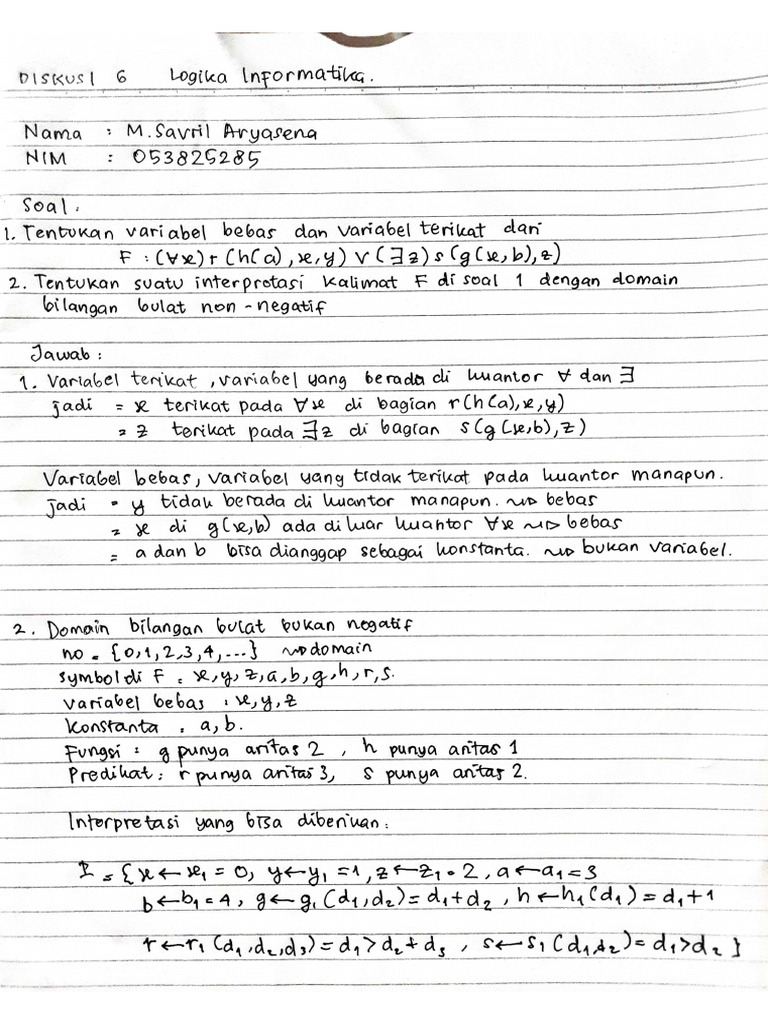 DISKUSI 6 Logika Informatika.
Nama : M. Savril Aryasena
NIM : 053825285
Soal.
1. Tentukan variabel bebas dan variabel terikat dari
F : (∀x) r(h(a), x, y) ∨ (∃z) s(g(x,b), z)
2. Tentukan suatu interpretasi kalimat F di soal 1 dengan domain
bilangan bulat non-negatif
Jawab :
1. Variabel terikat, variabel yang berada di kuantor ∀ dan ∃
jadi = x terikat pada ∀x di bagian r(h(a), x, y)
= z terikat pada ∃z di bagian s(g(x,b), z)
Variabel bebas, variabel yang tidak terikat pada kuantor manapun.
jadi = y tidak berada di kuantor manapun. ⇝ bebas
= x di g(x,b) ada diluar kuantor ∀x ⇝ bebas
= a dan b bisa dianggap sebagai konstanta. ⇝ bukan variabel.
2. Domain bilangan bulat bukan negatif
no = {0,1,2,3,4,...} ⇝ domain
symbol di F = x, y, z, a, b, g, h, r, s.
variabel bebas : x, y, z
Konstanta : a, b.
Fungsi : g punya aritas 2 , h punya aritas 1
Predikat : r punya aritas 3, s punya aritas 2.
Interpretasi yang bisa diberikan :
I = {x ← x₁ = 0, y ← y₁ = 1, z ← z₁ = 2, a ← a₁ = 3
b ← b₁ = 4, g ← g₁ (d₁, d₂) = d₁ + d₂ , h ← h₁ (d₁) = d₁ + 1
r ← r₁ (d₁, d₂, d₃) = d₁ > d₂ + d₃ , s ← s₁ (d₁, d₂) = d₁ > d₂ }